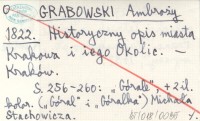 GRABOWSKI Ambroży
1822. Historyczny opis miasta
Krakowa i iego Okolic. —
Kraków.
S. 256-260: „Górale" + 2 il.
kolor. („Góral" i „Góralka") Michała
Stachowicza.